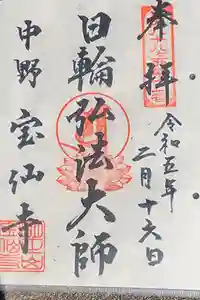 奉拝
令和五年
二月十六日
日輪弘法大師
中野
宝仙寺